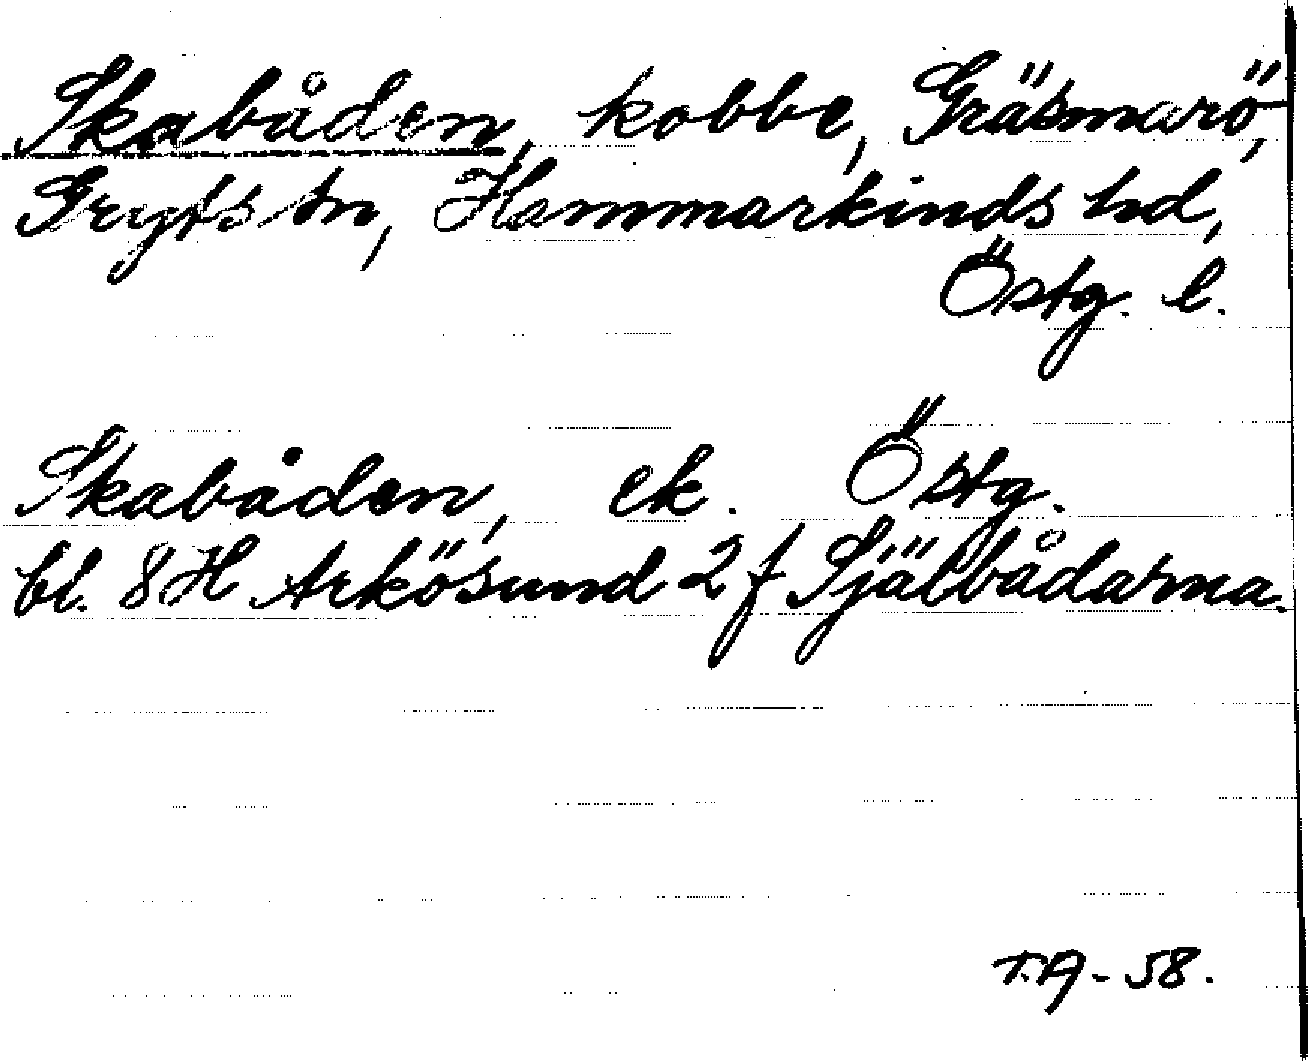 Skabåden, kobbe, Gräsmarö,
Gryts sn, Hammarkinds hd,
Östg. l.
Skabåden, ek. Östg.
bl. 8H Arkösund 2 f Själbådarna.
T.A - 58.